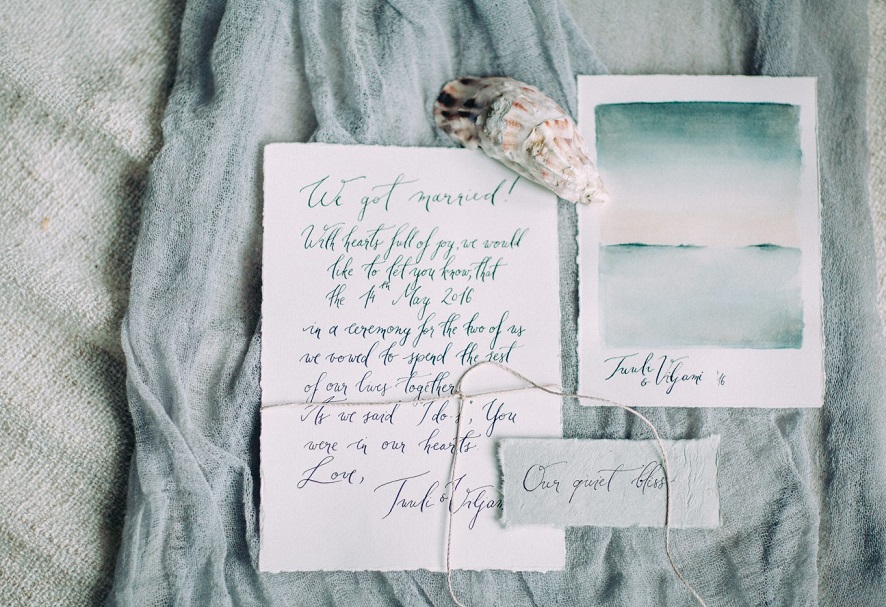 We got married!
With hearts full of joy, we would
like to let you know, that
the 14th May 2016
in a ceremony for the two of us
we vowed to spend the rest
of our lives together.
As we said "I do-s", You
were in our hearts.
Love,
Tuuli & Viljami
Tuuli
& Viljami '16
Our quiet bliss